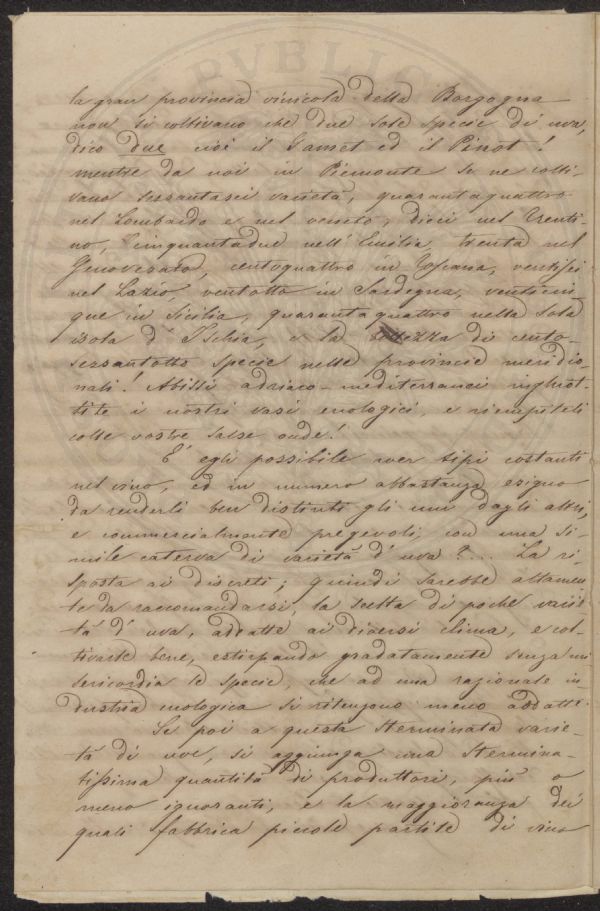 PVBLIC
la gran provincia vinicola della Borgogna
non si coltivano che due sole specie di uva,
dico due cioè il Gamet ed il Pinot!
mentre da noi in Piemonte se ne colti-
vano sessantasei varietà, quarantaquattro
nel Lombardo e nel veneto, dieci nel Trenti-
no, Cinquantadue nell'Emilia, trenta nel
Genovesato, centoquattro in Toscana, ventisei
nel Lazio, ventotto in Sardegna, venticin-
que in Sicilia, quarantaquattro nella sola
isola d'Ischia, e la bellezza di cento-
sessantotto specie nelle provincie meridio-
nali! Abissi adriaco-mediterranei inghiot-
tite i nostri vasi enologici, e riempiteli
colle vostre salse onde!
E' egli possibile aver tipi costanti
nel vino, ed in numero abbastanza esiguo
da renderli ben distinti gli uni dagli altri,
e commercialmente pregevoli, con una si-
mile caterva di varietà d'uva?... La ri-
sposta ai discreti; quindi sarebbe altamen
te da raccomandarsi, la scelta di poche varie
tà d'uva, addatte ai diversi clima, e col-
tivarle bene, estirpando gradatamente senza mi
sericordia le specie, che ad una razionale in-
dustria enologica si ritengono meno addatte.
Se poi a questa sterminata varie-
tà di uve, si aggiunga una stermina-
tissima quantità di produttori, più o
meno ignoranti, e la maggioranza dei
quali fabbrica piccole partite di vino